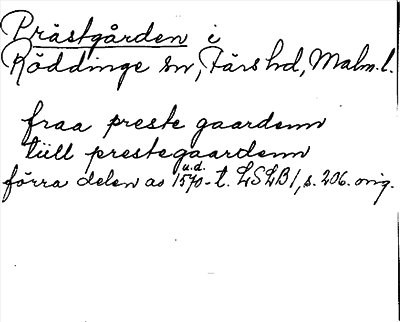 Prästgården i
Röddinge sn, Färs hd, Malm. l.
fraa preste gaardenn
tiill prestegaardenn
u.d.
förra delen av 1570-t. LSLB 1, s. 206. orig.